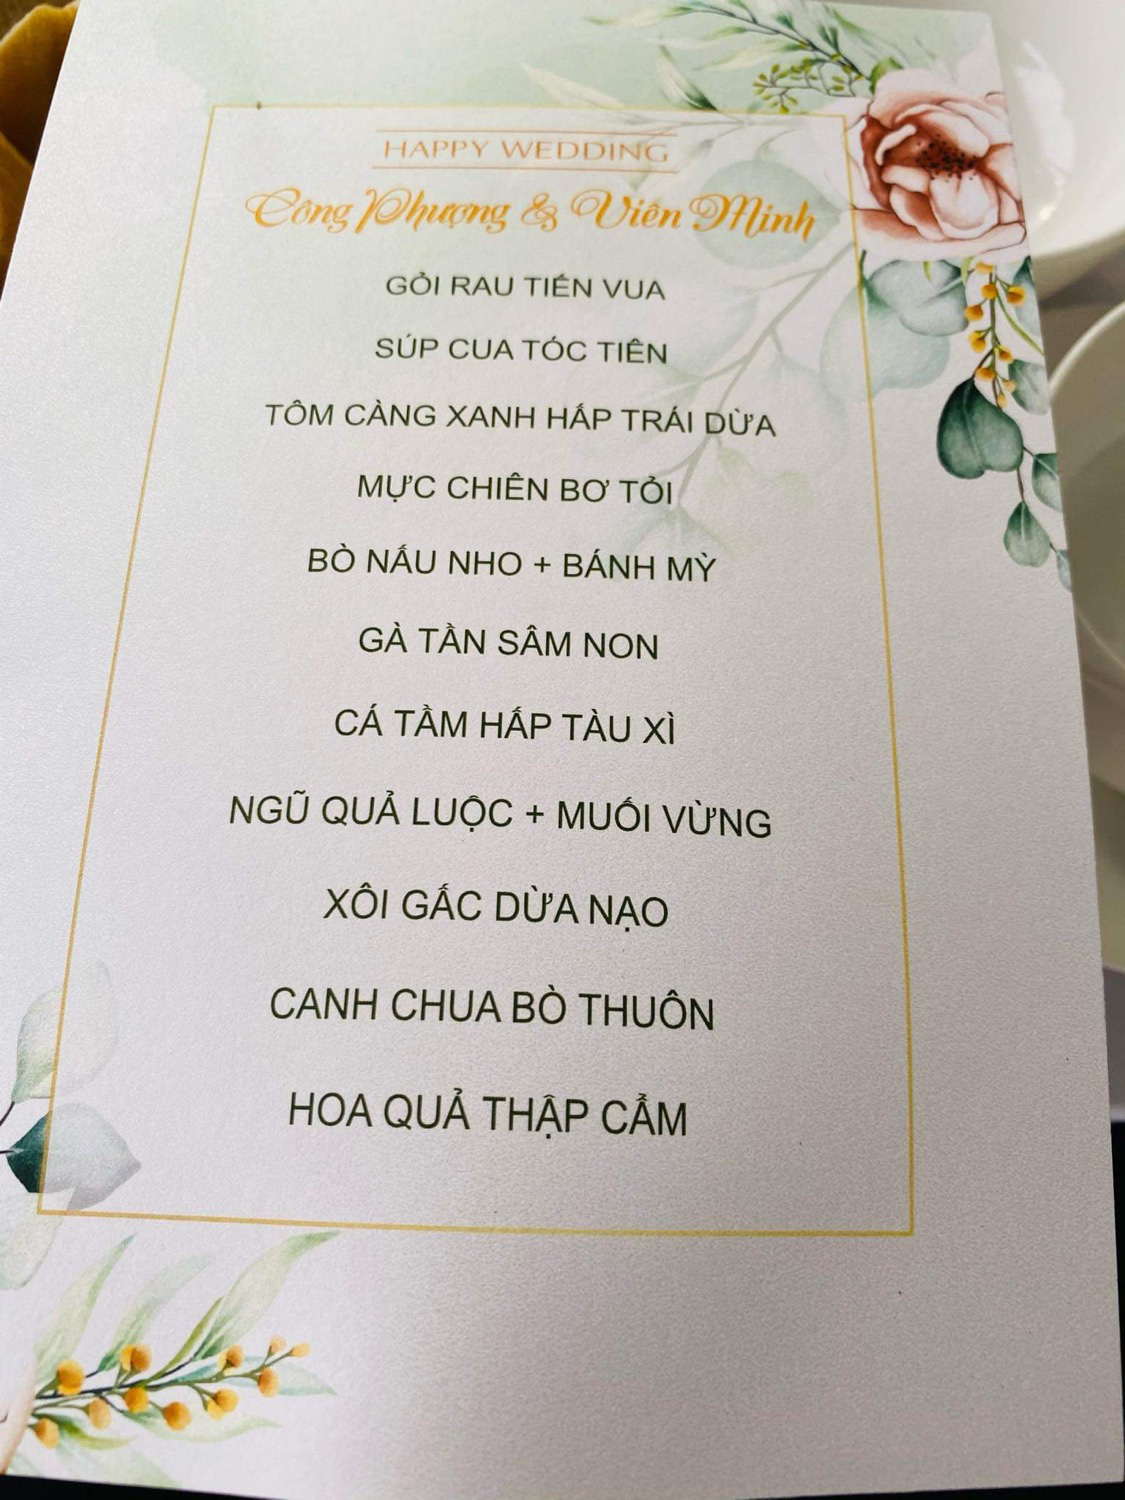 HAPPY WEDDING
Công Phượng & Viên Minh
GỎI RAU TIẾN VUA
SÚP CUA TÓC TIÊN
TÔM CÀNG XANH HẤP TRÁI DỪA
MỰC CHIÊN BƠ TỎI
BÒ NẤU NHO + BÁNH MỲ
GÀ TẦN SÂM NON
CÁ TẦM HẤP TÀU XÌ
NGŨ QUẢ LUỘC + MUỐI VỪNG
XÔI GẤC DỪA NẠO
CANH CHUA BÒ THUÔN
HOA QUẢ THẬP CẨM